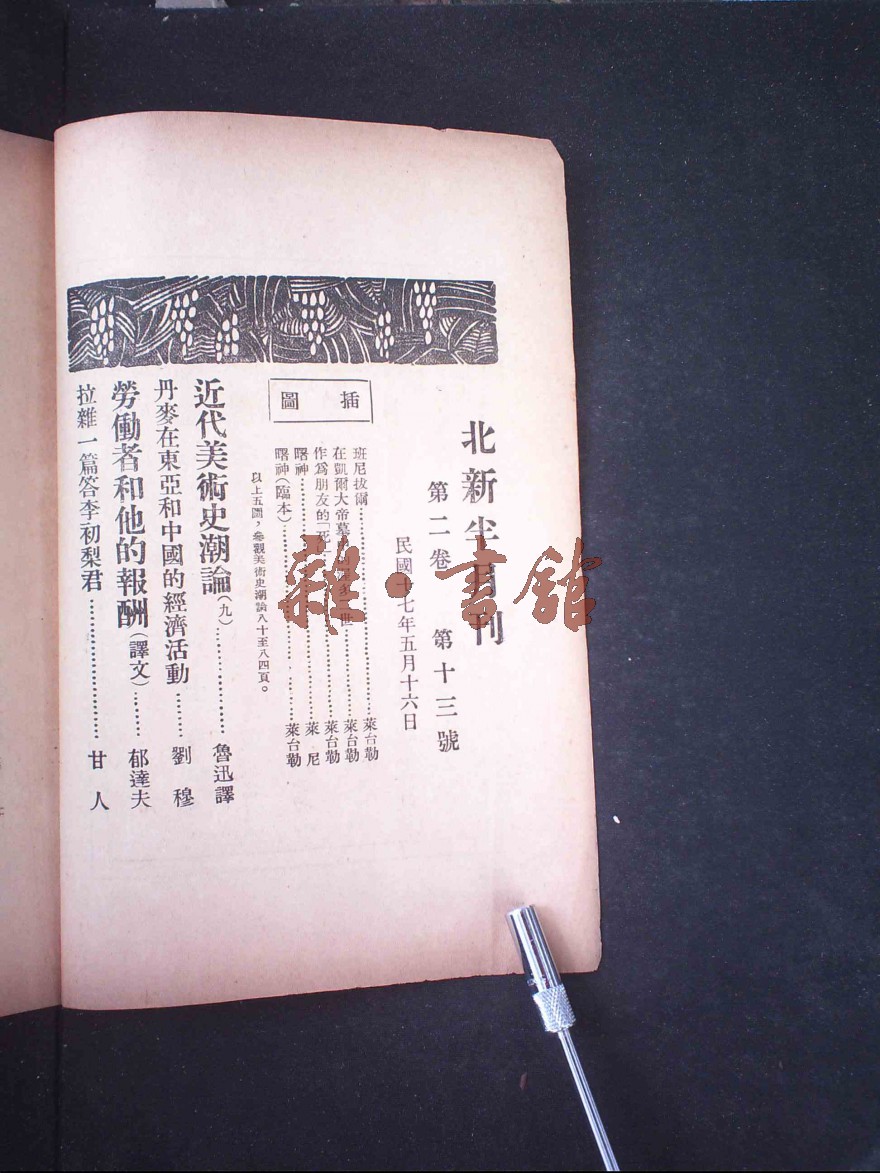 北新半月刊
第二卷 第十三號
民國十七年五月十六日
插圖
班尼拔爾……萊台勒
在凱爾大帝墓 世……萊台勒
作為朋友的「死」……萊台勒
曙神……萊尼
曙神(臨本)……萊台勒
以上五圖，參觀美術史潮論八十至八四頁。
近代美術史潮論(九)……魯迅譯
丹麥在東亞和中國的經濟活動……劉穆
勞働者和他的報酬(譯文)……郁達夫
拉雜一篇答李初梨君……甘人
雜·書館